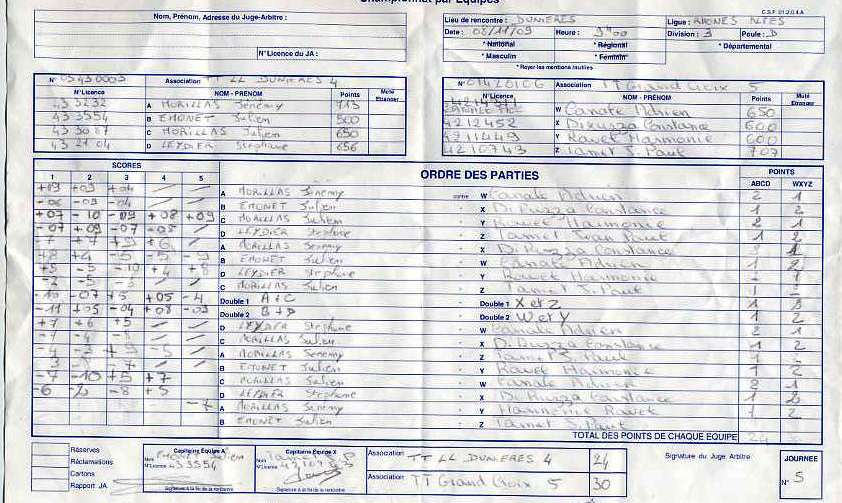 Championnat par Equipes
C.S.F. 01.2.0.4.A
Nom, Prénom, Adresse du Juge-Arbitre :
N° Licence du JA :
Lieu de rencontre : DUNIERES
Ligue : RHONES ALPES
Date : 08/11/09 Heure : 9h00
Division : 3 Poule : D
* National * Régional * Départemental
* Masculin * Féminin
* Rayer les mentions inutiles
N° 03430003 Association TT LL DUNIERES 4
N°Licence NOM - PRÉNOM Points Muté Etranger
433232 A MORILLAS Jérémy 713
433554 B EMONET Julien 500
433087 C MORILLAS Julien 650
432704 D LEYDIER Stéphane 656
N° 01420106 Association TT Grand Croix 5
N°Licence NOM - PRÉNOM Points Muté Etranger
W Canale Adrien 650
4212452 X Di Ruzza Constance 600
4211449 Y Ravet Harmonie 600
4210743 Z Jamet J. Paul 707
SCORES
ORDRE DES PARTIES
POINTS
1 2 3 4 5
ABCD WXYZ
+09 +09 +04 / / A MORILLAS Jérémy contre W Canale Adrien 2 1
-06 -09 -04 / / B EMONET Julien X Di Ruzza Constance 1 2
+07 -10 -09 +08 +09 C MORILLAS Julien Y Ravet Harmonie 2 1
-07 +09 -07 -05 / D LEYDIER Stéphane Z Jamet Jean Paul 1 2
A MORILLAS Jérémy X Di Ruzza Constance
B EMONET Julien W Canale Adrien 1 2
D LEYDIER Stéphane Y Ravet Harmonie
C MORILLAS Julien Z Jamet J. Paul
-10 -07 +5 +05 -4 Double 1 A + C Double 1 X et Z
-11 +05 -04 +08 -09 Double 2 B + D Double 2 W et Y 1 2
+7 +6 +5 / / D LEYDIER Stéphane W Canale Adrien 2 1
C MORILLAS Julien X Di Ruzza Constance 1 2
A MORILLAS Jérémy Z Jamet J. Paul
B EMONET Julien Y Ravet Harmonie 1 2
-7 -10 +5 +7 C MORILLAS Julien W Canale Adrien 2 1
D LEYDIER Stéphane X Di Ruzza Constance 1 2
A MORILLAS Jérémy Y Harmonie Ravet 1 2
B EMONET Julien Z Jamet J. Paul
TOTAL DES POINTS DE CHAQUE EQUIPE 24 30
Réserves
Réclamations
Cartons
Rapport JA
Capitaine Equipe A
Nom EMONET Julien
N°Licence 433554
Signature à la fin de la rencontre
Capitaine Equipe X
Nom Jamet J P
N°Licence 4210743
Signature à la fin de la rencontre
Association TT LL DUNIERES 4 24
Association TT Grand Croix 5 30
Signature du Juge Arbitre
JOURNEE
N° 5